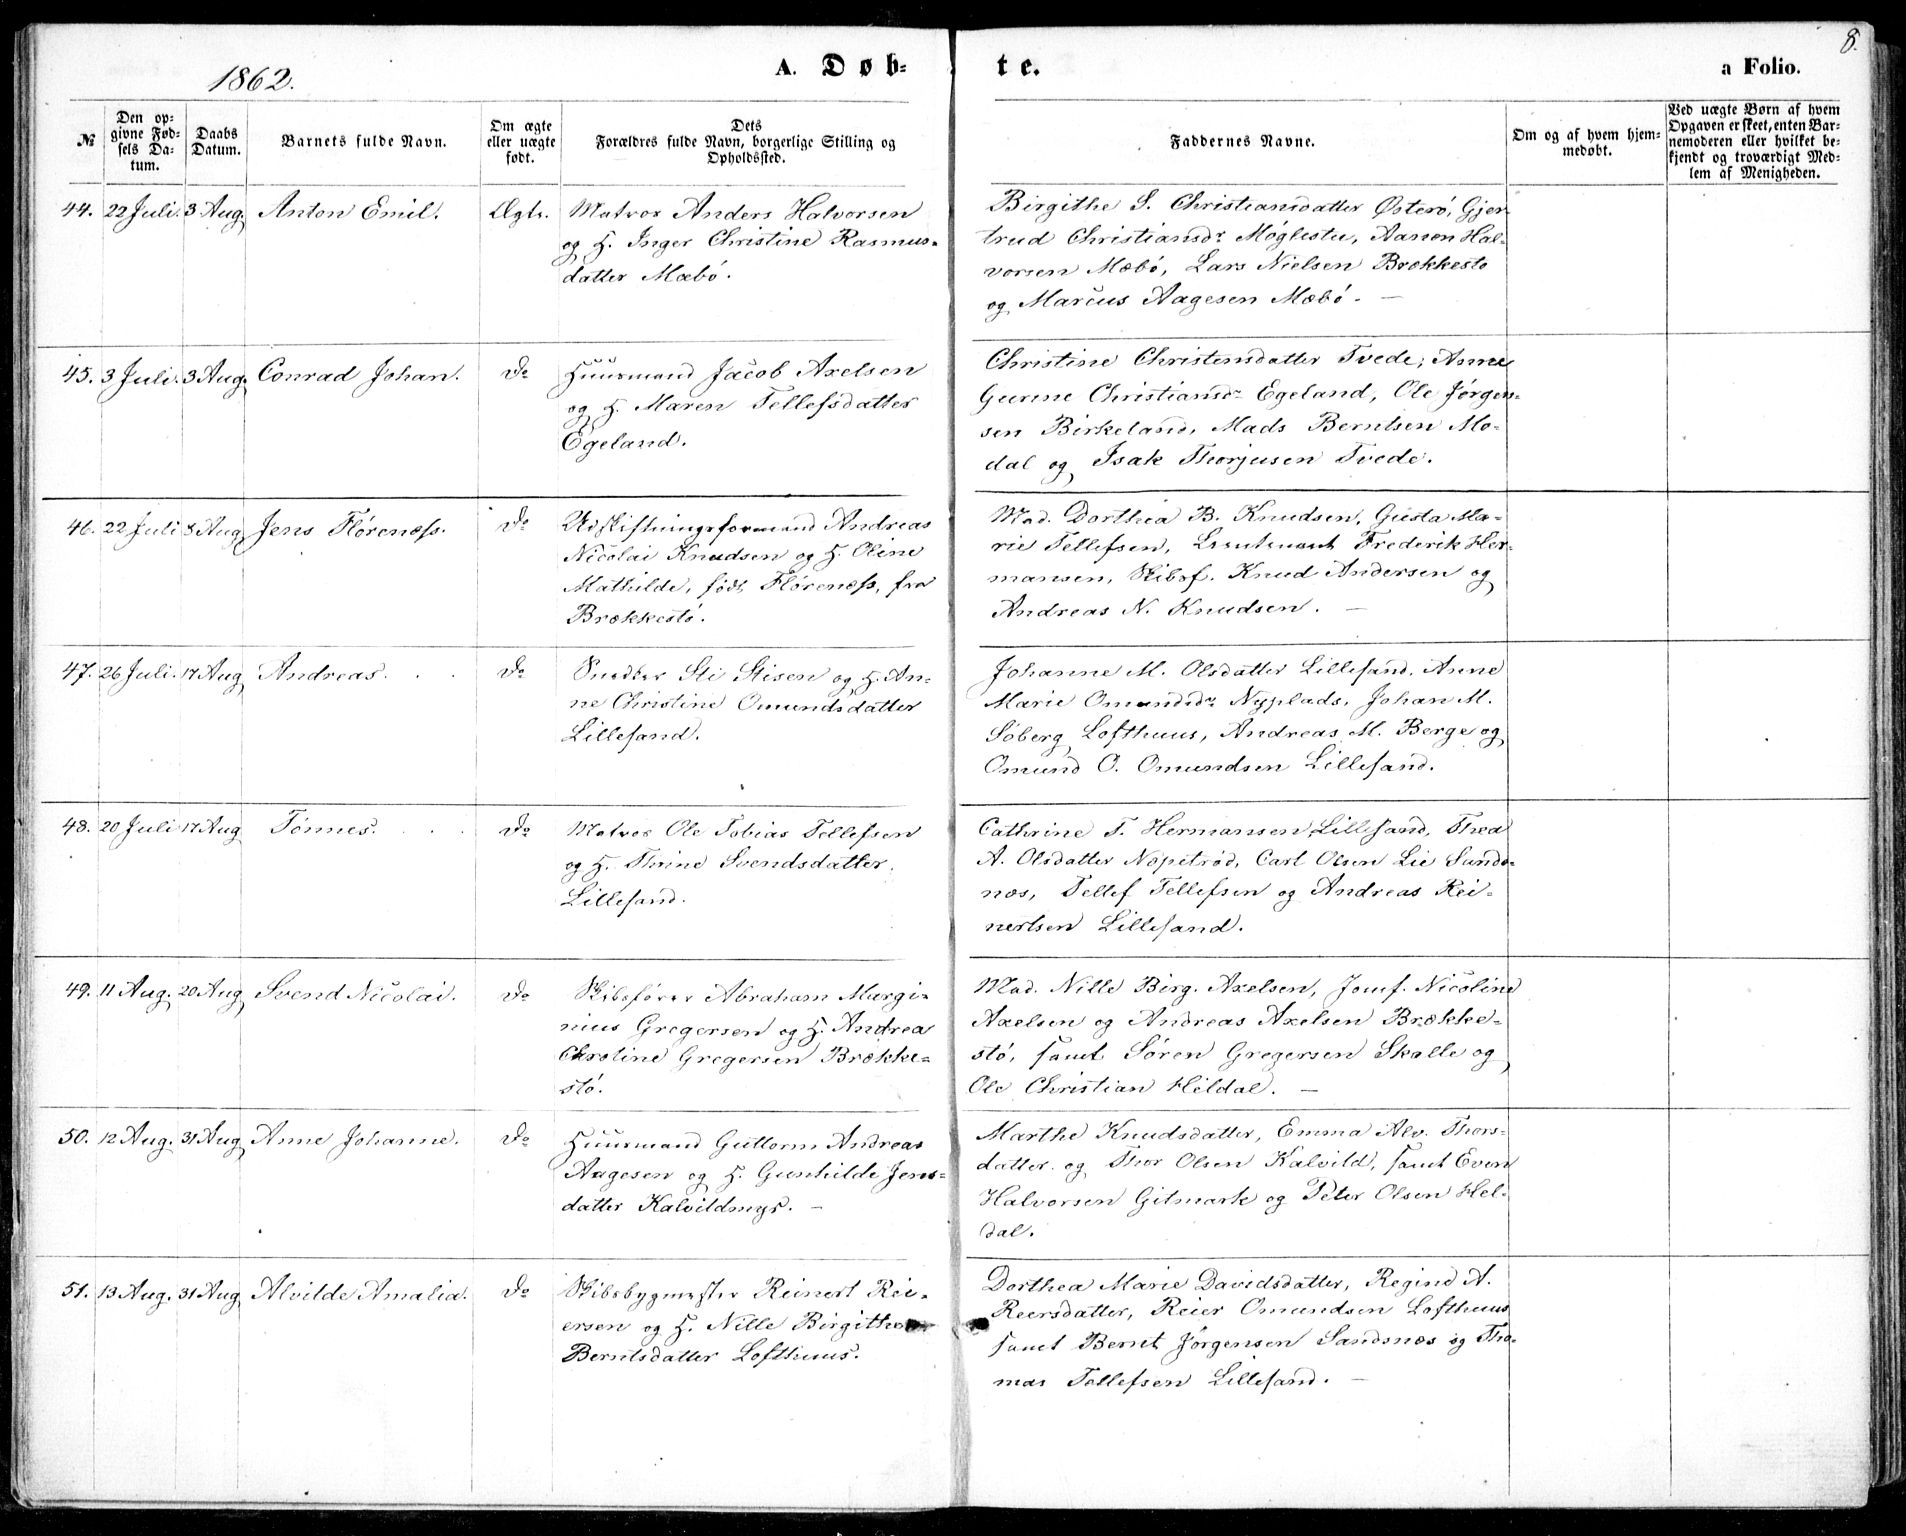 8.
1862.
A. Døb-
te.
a Folio.
№
Den op-
givne Fød-
sels Da-
tum.
Daabs
Datum.
Barnets fulde Navn.
Om ægte
eller uægte
født.
Dets
Forældres fulde Navn, borgerlige Stilling og
Opholdssted.
Faddernes Navne.
Om og af hvem hjem-
medøbt.
Ved uægte Børn af hvem
Opgaven er skeet, enten Bar-
nemoderen eller hvilket be-
kjendt og troværdigt Med-
lem af Menigheden.
44. 22 Juli. 3 Aug. Anton Emil. Ægte.
Matros Anders Halvorsen
og H. Inger Christine Rasmus-
datter Mæbø.
Birgithe S. Christiansdatter Østerø, Gjer-
trud Christiansdr Møglestu, Aanon Hal-
vorsen Mæbø, Lars Nielsen Brækkestø
og Marcus Aagesen Mæbø. —
45. 3 Juli. 3 Aug. Conrad Johan. Do
Huusmand Jacob Axelsen
og H. Maren Tellefsdatter
Egeland.
Christine Christensdatter Tvede, Anne
Gurine Christiansdr Egeland, Ole Jørgen-
sen Birkeland, Mads Berntsen Mo-
dal og Isak Thorjusen Tvede.
46. 22 Juli 8 Aug. Jens Flørenæss. Do
Udskiftningsformand Andreas
Nicolai Knudsen og H. Oline
Mathilde, født Flørenæss, fra
Brækkestø.
Mad. Dorthea B. Knudsen, Gusta Ma-
rie Tellefsen, Lieutenant Frederik Her-
mansen, Skibsf. Knud Andersen og
Andreas N. Knudsen. —
47. 26 Juli. 17 Aug. Andreas. Do
Snedker Sti Stisen og H. An-
ne Christine Omundsdatter
Lillesand.
Johanne M. Olsdatter Lillesand. Anne
Marie Omundsdr Nyplads, Johan M.
Søberg Lofthuus, Andreas M. Berge og
Omund O. Omundsen Lillesand.
48. 20 Juli 17 Aug Tønnes. Do
Matros Ole Tobias Tellefsen
og H. Thrine Svendsdatter
Lillesand.
Cathrine T. Hermansen Lillesand, Thea
A. Olsdatter Nøpitrød, Carl Olsen Lie Sands-
næs, Tellef Tellefsen og Andreas Rei-
nertsen Lillesand.
49. 11 Aug. 20 Aug Svend Nicolai. Do
Skibsfører Abraham Murgi-
nius Gregersen og H. Andrea
Caroline Gregersen Brække-
stø.
Mad. Nille Birg. Axelsen, Jomf. Nicoline
Axelsen og Andreas Axelsen Brække-
stø, samt Søren Gregersen Skalle og
Ole Christian Heldal. —
50. 12 Aug. 31 Aug Anne Johanne. Do
Huusmand Guttorm Andreas
Aagesen og H. Gunhilde Jens-
datter Kalvildmyr. —
Marthe Knudsdatter, Emma Alv. Thors-
datter og Thor Olsen Kalvild, samt Even
Halvorsen Gitmark og Peter Olsen Hel-
dal.
51. 13 Aug. 31 Aug Alvilde Amalia. Do
Skibsbygmester Reinert Rei-
ersen og H. Nille Birgithe
Berntsdatter Lofthuus.
Dorthea Marie Davidsdatter, Regine A.
Reersdatter, Reier Omundsen Lofthuus
samt Bernt Jørgensen Sandsnæs og Tho-
mas Tellefsen Lillesand. —